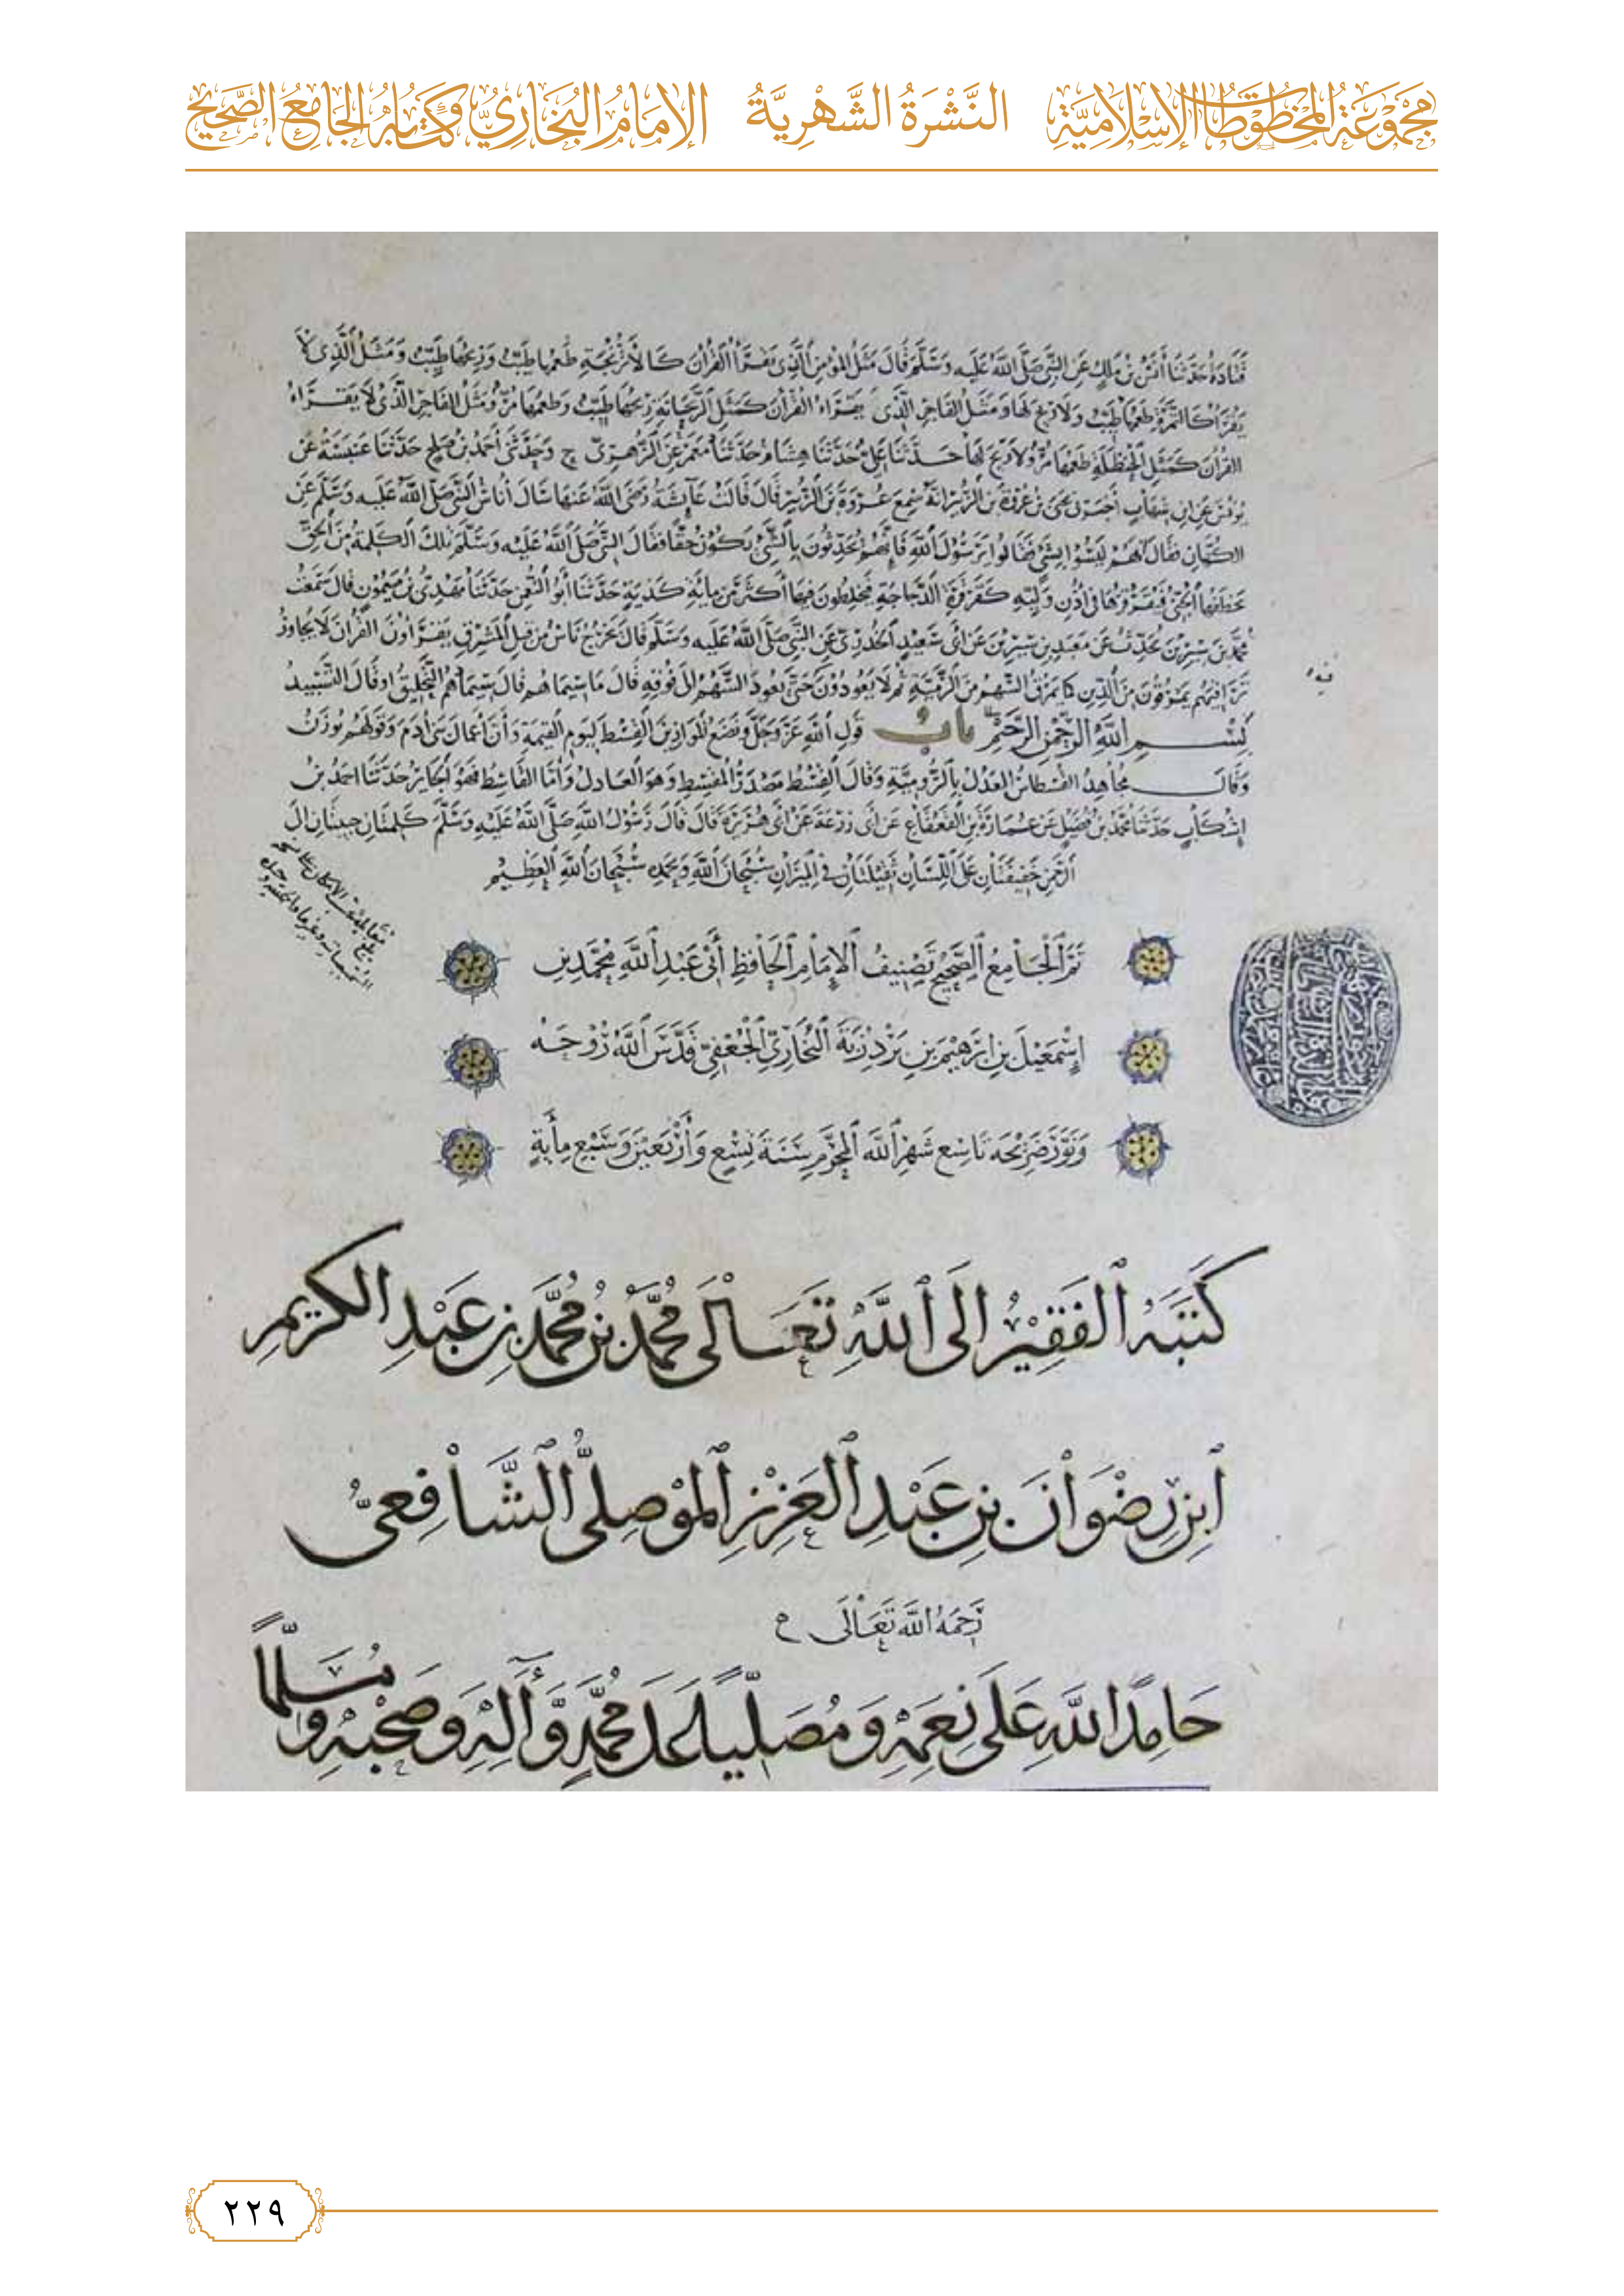 مجموعة المخطوطات الإسلامية النَّشْرَةُ الشَّهْرِيَّةُ الإمامُ البُخَارِيُّ وَكِتَابُهُ الجَامِعُ الصَّحِيحُ
قتادة حدثنا أنس بن ملك عن النبي صلى الله عليه وسلم قال مثل المؤمن الذي يقرأ القرآن كالأترنجة طعمها طيب وريحها طيب ومثل الذي لا
يقرأ كالتمرة طعمها طيب ولا ريح لها ومثل الفاجر الذي يقراء القرآن كمثل الريحانة ريحها طيب وطعمها مر ومثل الفاجر الذي لا يقراء
القرآن كمثل الحنظلة طعمها مر ولا ريح لها حدثنا علي حدثنا هشام حدثنا معمر عن الزهري ح وحدثني أحمد بن صالح حدثنا عنبسة عن
يونس عن ابن شهاب أخبرني يحيى بن عروة بن الزبير انه سمع عروة بن الزبير قال قالت عآيشة رضي الله عنها سال أناس النبي صلى الله عليه وسلم عن
الكهان فقال لهم ليسوا بشي فقالوا يرسول الله فانهم يحدثون بالشيء يكون حقا فقال النبي صلى الله عليه وسلم تلك الكلمة من الحق
يخطفها الجني فيقرقرها في أذن وليه كقرقرة الدجاجة فيخلطون فيها أكثر من مائة كذبة حدثنا أبو النعمن حدثنا مهدي بن ميمون قال سمعت
محمد بن سيرين يحدث عن معبد بن سيرين عن أبي سعيد الخدري عن النبي صلى الله عليه وسلم قال يخرج ناس من قبل المشرق يقراون القرآن لا يجاوز
تراقيهم يمرقون من الدين كما يمرق السهم من الرمية ثم لا يعودون حتى يعود السهم الى فوقه قال ما سيماهم قال سيماهم التحليق او قال التسبيد
بسم الله الرحمن الرحيم باب قول الله عز وجل ونضع الموازين القسط ليوم القيمة وأن أعمال بني آدم وقولهم يوزن
وقال مجاهد القسطاس العدل بالرومية وقال القسط مصدر المقسط وهو العادل وأما القاسط فهو الجاير حدثنا احمد بن
إشكاب حدثنا محمد بن فضيل عن عمارة بن القعقاع عن أبي زرعة عن أبي هريرة قال قال رسول الله صلى الله عليه وسلم كلمتان حبيبتان الى
الرحمن خفيفتان على اللسان ثقيلتان في الميزان سبحان الله وبحمده سبحان الله العظيم
تَمَّ الجامع الصحيح تصنيف الإمام الحافظ أبي عبد الله محمد بن
إسمعيل بن ابرهيم بن بردزبة البخاري الجعفي قدس الله روحه
ونور ضريحه تاسع شهر الله المحرم سنة تسع وأربعين وسبع مأية
كَتَبَهُ الفَقِيرُ إلَى اللهِ تَعَالَى مُحَمَّدُ بْنُ مُحَمَّدِ بنِ عَبْدِ الكريمِ
ابنِ رِضْوَانَ بنِ عَبْدِ العَزِيزِ المَوْصِلِيُّ الشَّافِعِيُّ
رَحِمَهُ اللهُ تَعَالَى
حَامِدًا للهِ عَلَى نِعَمِهِ وَمُصَلِّيًا عَلَى مُحَمَّدٍ وَآلِهِ وَصَحْبِهِ وَمُسَلِّمًا
٢٢٩